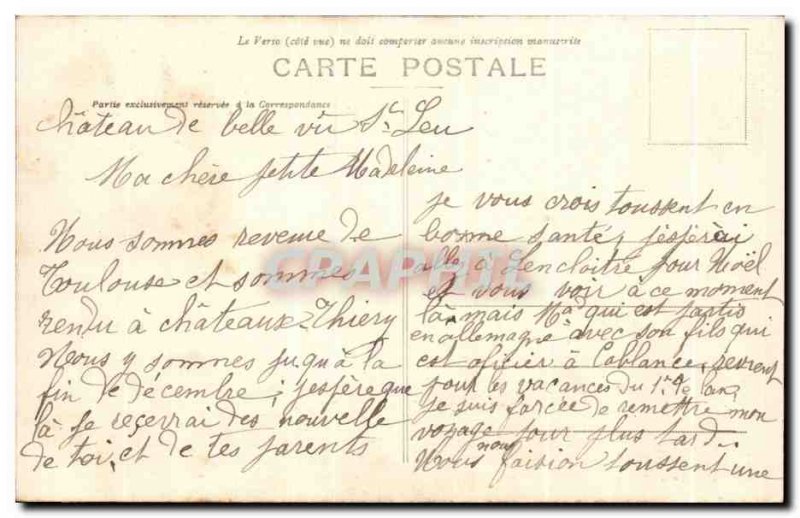 Le Verso (côté vue) ne doit comporter aucune inscription manuscrite
CARTE POSTALE
Partie exclusivement réservée à la Correspondance
château de belle vü St Leu
Ma chère petite Madeleine
Nous sommes revenue de
Toulouse et sommes
rendu à châteaux-Thiery
Nous y sommes juqu'à la
fin de decembre; j'espère que
là je reçevrai des nouvelle
de toi, et de tes parents
je vous crois toussent en
bonne santé, j'esperai
alle à Lencloitre pour Noël
et vous voir à ce moment
là, mais Ma qui est partis
en allemagne avec son fils qui
est oficier à Coblance, revrent
pour les vacances du 1r de l'an,
je suis forcée de remettre mon
voyage pour plus tard.
Nous nous faision toussent une
CPARAMA